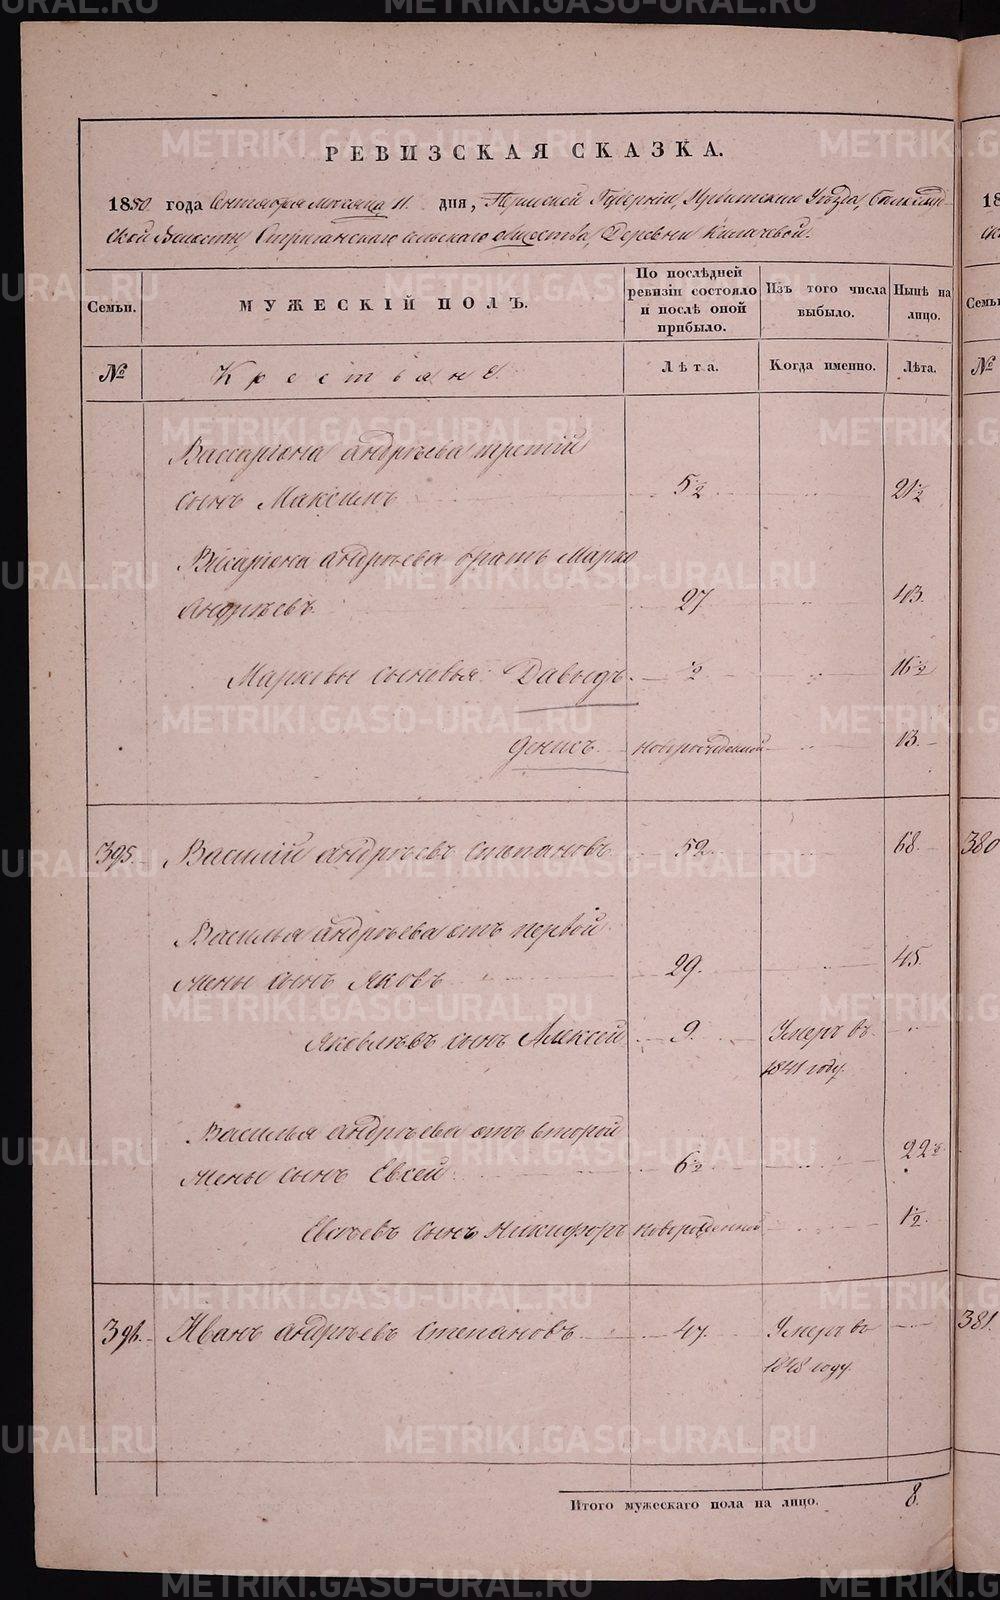 METRIKI.GASO-URAL.RU
РЕВИЗСКАЯ СКАЗКА.
1850 года Сентября месяца 11 дня, Пермской Губерніи, Ирбитскаго Уѣзда,
ской Волости, Стриганскаго сельскаго общества, Деревни Кишачевой.
Семьи.
МУЖЕСКІЙ ПОЛЪ.
По послѣдней ревизіи состояло и послѣ оной прибыло.
Изъ того числа выбыло.
Нынѣ на лицо.
Семьи
№
Крестьяне.
Лѣта.
Когда именно.
Лѣта.
№
Вассаріона Андрѣева третій
сынъ Максимъ 5½ 21½
Висаріона Андрѣева братъ Марко
Андрѣевъ 27 43.
Марковы сыновья: Давыдъ. ½ 16½
Денисъ. новорожденной 13.
395. Василій Андрѣевъ Степановъ 52. 68. 380
Василья Андрѣева отъ первой
жены сынъ Яковъ 29. 45.
Яковлѣвъ сынъ Алексей 9. Умеръ въ
1841 году.
Василья Андрѣева отъ второй
жены сынъ Евсей 6½ 22½
Евсѣевъ сынъ Никифоръ новорожденной 1½.
396. Иванъ Андрѣевъ Степановъ. 47. Умеръ въ 381.
1848 году.
Итого мужескаго пола на лицо. 8.